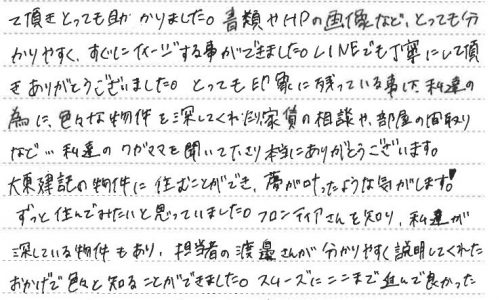 て頂きとっても助かりました。書類やHPの画像など、とっても分
かりやすく、すぐにイメージする事ができました。LINEでも丁寧にして頂
きありがとうございました。とっても印象に残っている事は、私達の
為に、色々な物件を探してくれたり、家賃の相談や、部屋の間取り
など…私達のワガママを聞いて下さり本当にありがとうございます。
大東建託の物件に住むことができ、夢が叶ったような気がします!
ずっと住んでみたいと思っていました。フロンティアさんを知り、私達が
探している物件もあり、担当者の渡邉さんが分かりやすく説明してくれた
おかげで色々と知ることができました。スムーズにここまで進んで良かった